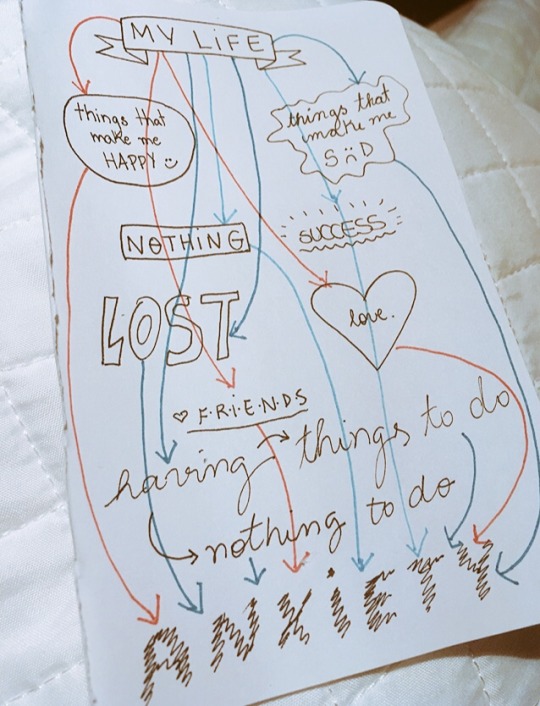 MY LiFE
things that
make me
HAPPY
things that
make me
SAD
NOTHING
SUCCESS
LOST
love.
F·R·i·E·N·D·S
having things to do
nothing to do
ANXIETY